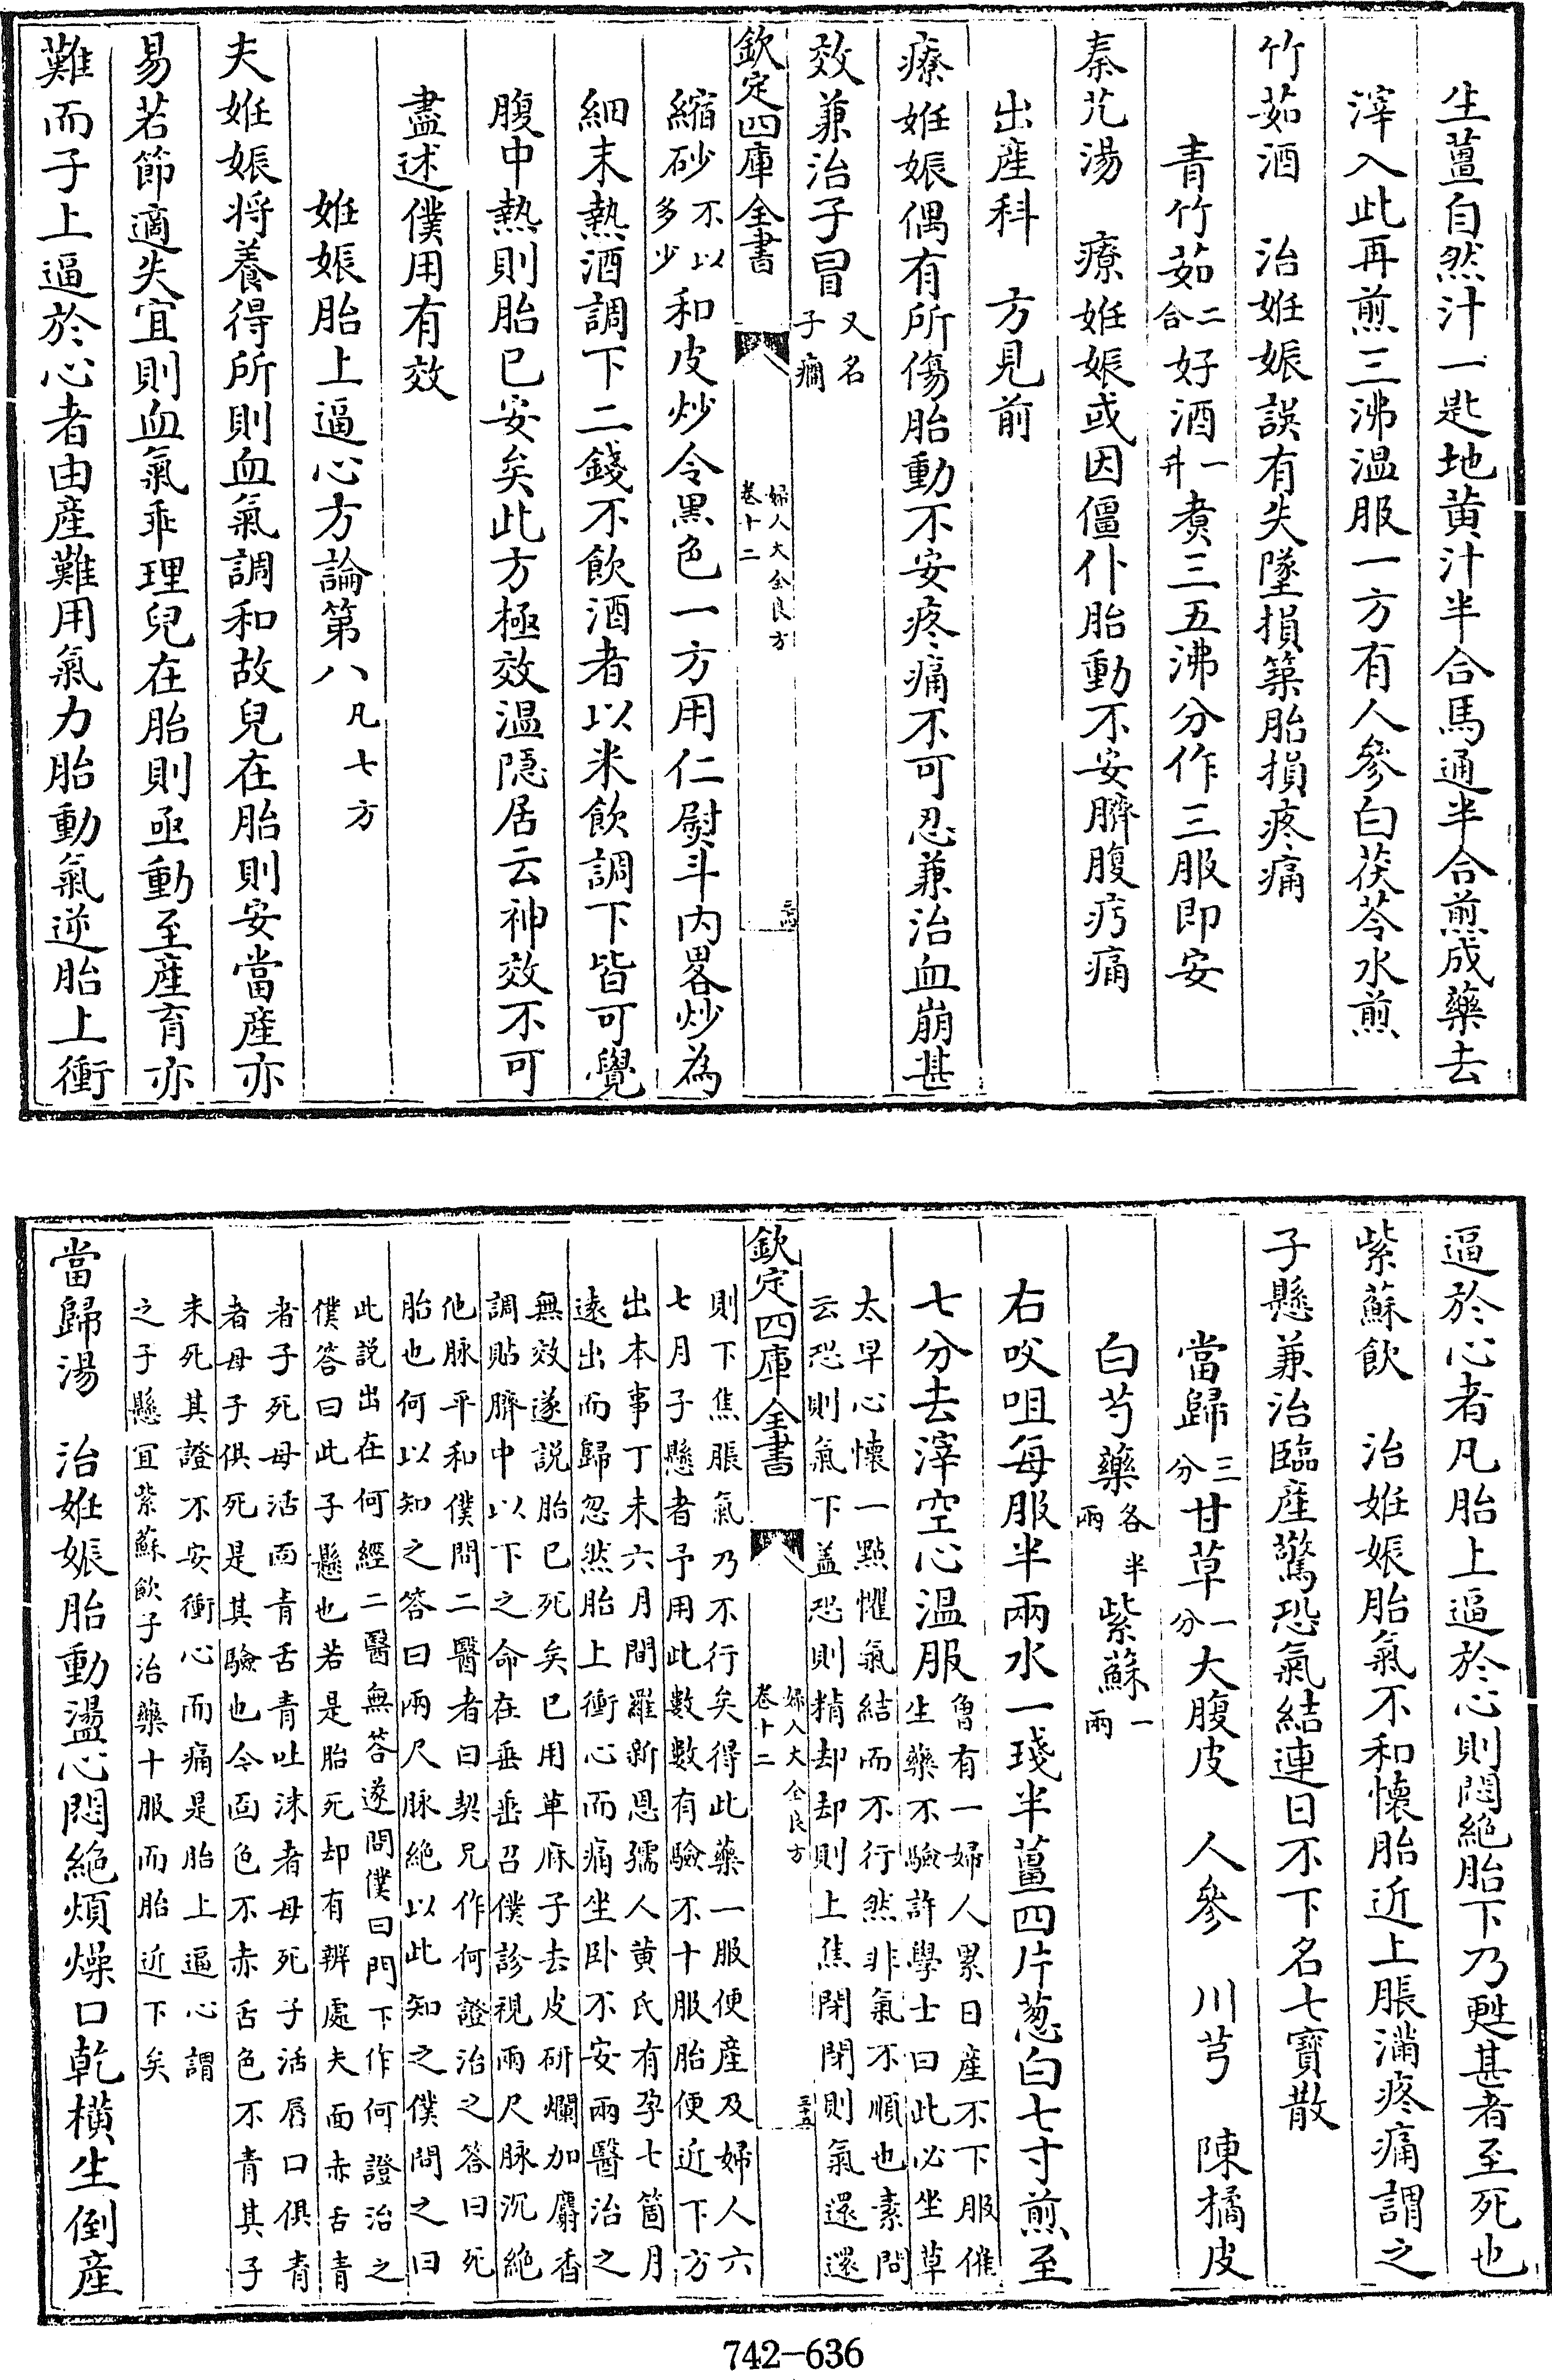 生薑自然汁一匙地黄汁半合馬通半合煎成藥去
滓入此再煎三沸温服一方有人參白茯苓水煎
竹茹酒　治姙娠誤有失墜損築胎損疼痛
青竹茹二合好酒一升煑三五沸分作三服即安
秦艽湯　療姙娠或因僵仆胎動不安臍腹㽲痛
出産科　方見前
療姙娠偶有所傷胎動不安疼痛不可忍兼治血崩甚
效兼治子冒又名子癎
欽定四庫全書　婦人大全良方卷十二
縮砂不以多少和皮炒令黒色一方用仁熨斗内畧炒為
細末熱酒調下二錢不飲酒者以米飲調下皆可覺
腹中熱則胎已安矣此方極效温隠居云神效不可
盡述僕用有效
姙娠胎上逼心方論第八凡七方
夫姙娠将養得所則血氣調和故兒在胎則安當産亦
易若節適失宜則血氣乖理兒在胎則亟動至産育亦
難而子上逼於心者由産難用氣力胎動氣逆胎上衝
逼於心者凡胎上逼於心則悶絶胎下乃甦甚者至死也
紫蘇飲　治姙娠胎氣不和懐胎近上脹滿疼痛謂之
子懸兼治臨産驚恐氣結連日不下名七寳散
當歸三分甘草一分大腹皮　人參　川芎　陳橘皮
白芍藥各半兩紫蘇一兩
右㕮咀每服半兩水一琖半薑四片葱白七寸煎至
七分去滓空心温服曽有一婦人累日産不下服催
生藥不驗許學士曰此必坐草
太早心懐一點懼氣結而不行然非氣不順也素問
云恐則氣下盖恐則精却却則上焦閉閉則氣還還
欽定四庫全書　婦人大全良方卷十二　三十五
則下焦脹氣乃不行矣得此藥一服便産及婦人六
七月子懸者予用此數數有驗不十服胎便近下方
出本事丁未六月間羅新恩孺人黄氏有孕七箇月
逺出而歸忽然胎上衝心而痛坐卧不安兩醫治之
無效遂説胎已死矣已用草麻子去皮研爛加麝香
調貼臍中以下之命在垂垂召僕診視兩尺脉沉絶
他脉平和僕問二醫者曰契兄作何證治之答曰死
胎也何以知之答曰兩尺脉絶以此知之僕問之曰
此説出在何經二醫無答遂問僕曰門下作何證治之
僕答曰此子懸也若是胎死却有辨處夫面赤舌青
者子死母活面青舌青吐沫者母死子活唇口俱青
者母子俱死是其驗也今面色不赤舌色不青其子
未死其證不安衝心而痛是胎上逼心謂
之子懸宜紫蘇飲子治藥十服而胎近下矣
當歸湯　治姙娠胎動盪心悶絶煩燥口乾横生倒産
742—636